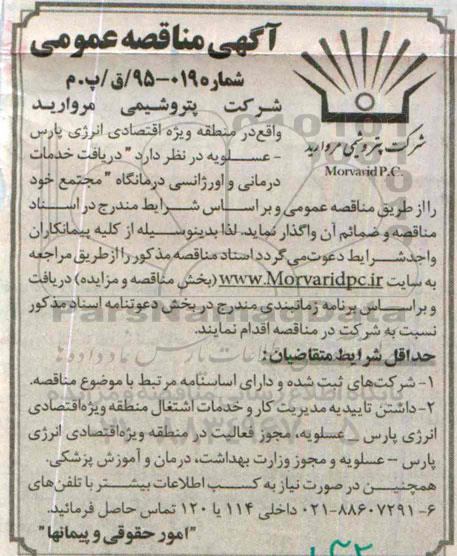 آگهی مناقصه عمومی
شماره ۰۱۹-۹۵/ق/پ.م
شرکت پتروشیمی مروارید
Morvarid P.C.
شرکت پتروشیمی مروارید
واقع در منطقه ویژه اقتصادی انرژی پارس
- عسلویه در نظر دارد "دریافت خدمات
درمانی و اورژانسی درمانگاه" مجتمع خود
را از طریق مناقصه عمومی و بر اساس شرایط مندرج در اسناد
مناقصه و ضمائم آن واگذار نماید. لذا بدینوسیله از کلیه پیمانکاران
واجد شرایط دعوت می گردد اسناد مناقصه مذکور را از طریق مراجعه
به سایت www.Morvaridpc.ir (بخش مناقصه و مزایده) دریافت
و بر اساس برنامه زمانبندی مندرج در بخش دعوتنامه اسناد مذکور
نسبت به شرکت در مناقصه اقدام نمایند.
حداقل شرایط متقاضیان:
۱- شرکت‌های ثبت شده و دارای اساسنامه مرتبط با موضوع مناقصه.
۲- داشتن تاییدیه مدیریت کار و خدمات اشتغال منطقه ویژه اقتصادی
انرژی پارس - عسلویه، مجوز فعالیت در منطقه ویژه اقتصادی انرژی
پارس - عسلویه و مجوز وزارت بهداشت، درمان و آموزش پزشکی.
همچنین در صورت نیاز به کسب اطلاعات بیشتر با تلفن‌های
۶-۸۸۶۰۷۲۹۱-۰۲۱ داخلی ۱۱۴ یا ۱۲۰ تماس حاصل فرمائید.
"امور حقوقی و پیمانها"
ParsNamadData